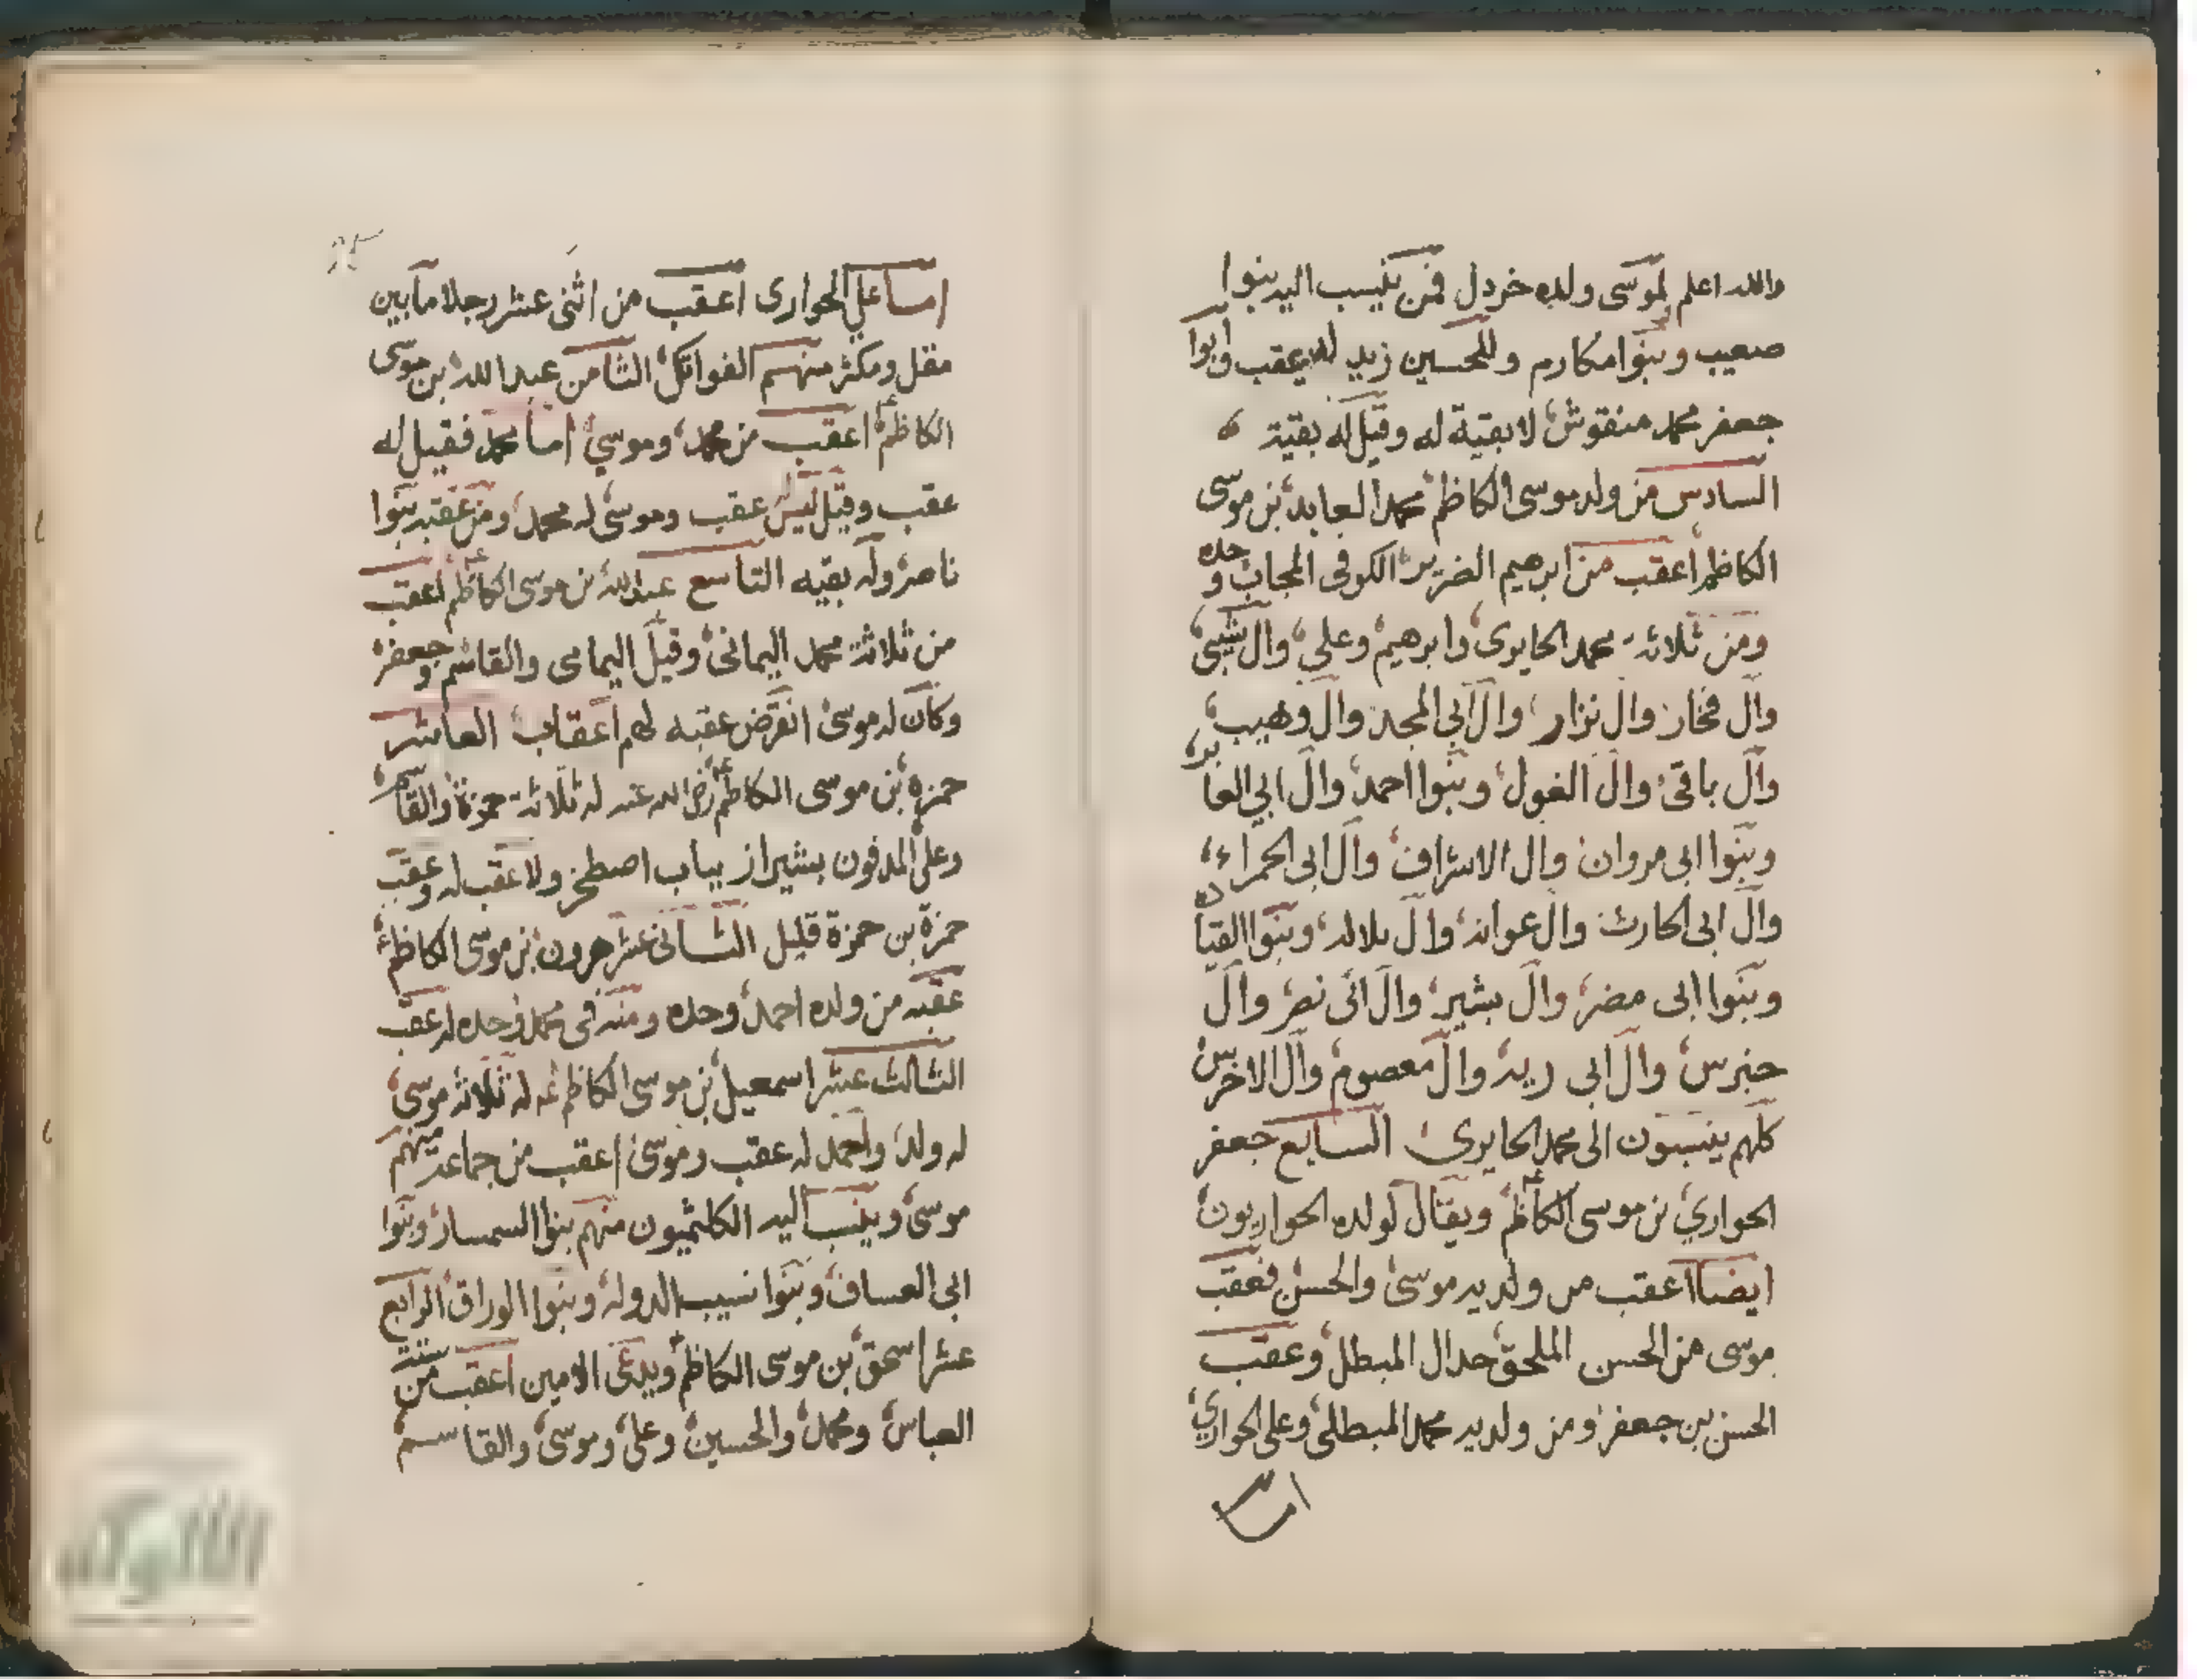 والله اعلم لموسى ولده خردل فمن ينسب اليه بنوا
صعيب وبنوا مكارم وللحسين زيد لم يعقب وابوا
جعفر محمد منقوش لا بقية له وقيل له بقية
السادس من ولد موسى الكاظم محمد العابد بن موسى
الكاظم اعقب من ابرهيم الضرير الكوفى المجاب وحده
ومن ثلاثة محمد الحايرى وابرهيم وعلي وال شيتى
وال فخار وال نزار وال ابي المجد وال وهيب
وال باقى وال الغول وبنوا احمد وال ابي العابر
وبنوا ابى مروان وال الاشراف وال ابى الحمراء
وال ابى الحارث وال عوانه وال بلاله وبنوا القتاده
وبنوا ابى مضر وال بشير وال ابى نصر وال
حترس وال ابى ريه وال معصوم وال الاخرس
كلهم ينسبون الى محمد الحايرى السابع جعفر
الحواري بن موسى الكاظم ويقال لولده الحواريون
ايضا اعقب من ولديه موسى والحسن فعقب
موسى من الحسن الملحق حدال المبطل وعقب
الحسن بن جعفر ومن ولديه محمد المبطلى وعلى الحواري
اما
اما علي الحوارى اعقب من اثنى عشر رجلا ما بين
مقل ومكثر منهم الفواتك الثامن عبد الله بن موسى
الكاظم اعقب من محمد وموسي اما محمد فقيل له
عقب وقيل ليس له عقب وموسى له محمد ومن عقبه بنوا
ناصر وله بقيه التاسع عبد الله بن موسى الكاظم اعقب
من ثلاثة محمد اليمانى وقيل اليمامى والقاسم وجعفر
وكان له موسى انقرض عقبه لهم اعقاب العاشر
حمزه بن موسى الكاظم رضي الله عنه له ثلاثة حمزة والقاسم
وعلى المدفون بشيراز بباب اصطخر ولا عقب له وعقب
حمزة بن حمزة قليل الثانى عشر هرون بن موسى الكاظم
عقبه من ولده احمد وحده ومنه فى محمد وحده له عقب
الثالث عشر اسمعيل بن موسى الكاظم له ثلاثه موسى
له ولد واحمد له عقب وموسى اعقب من جماعة منهم
موسى وينسب اليه الكلثميون منهم بنوا السمسار وبنوا
ابى العساف وبنوا نسيب الدوله وبنوا الوراق الرابع
عشر اسحق بن موسى الكاظم ويدعى الامين اعقب من ستة
العباس ومحمد والحسين وعلى وموسى والقاسم